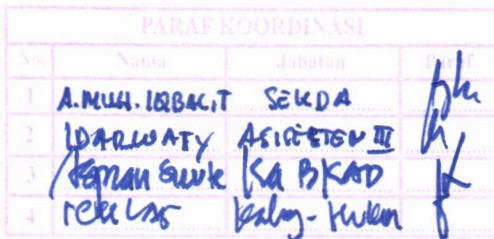 PARAF KOORDINASI
No. Nama Jabatan Paraf
1 A. MUH. IQBAL.T SEKDA
2 IDARWATY ASISTEN III
3 Ka BKAD
4 Kabag-Hukum